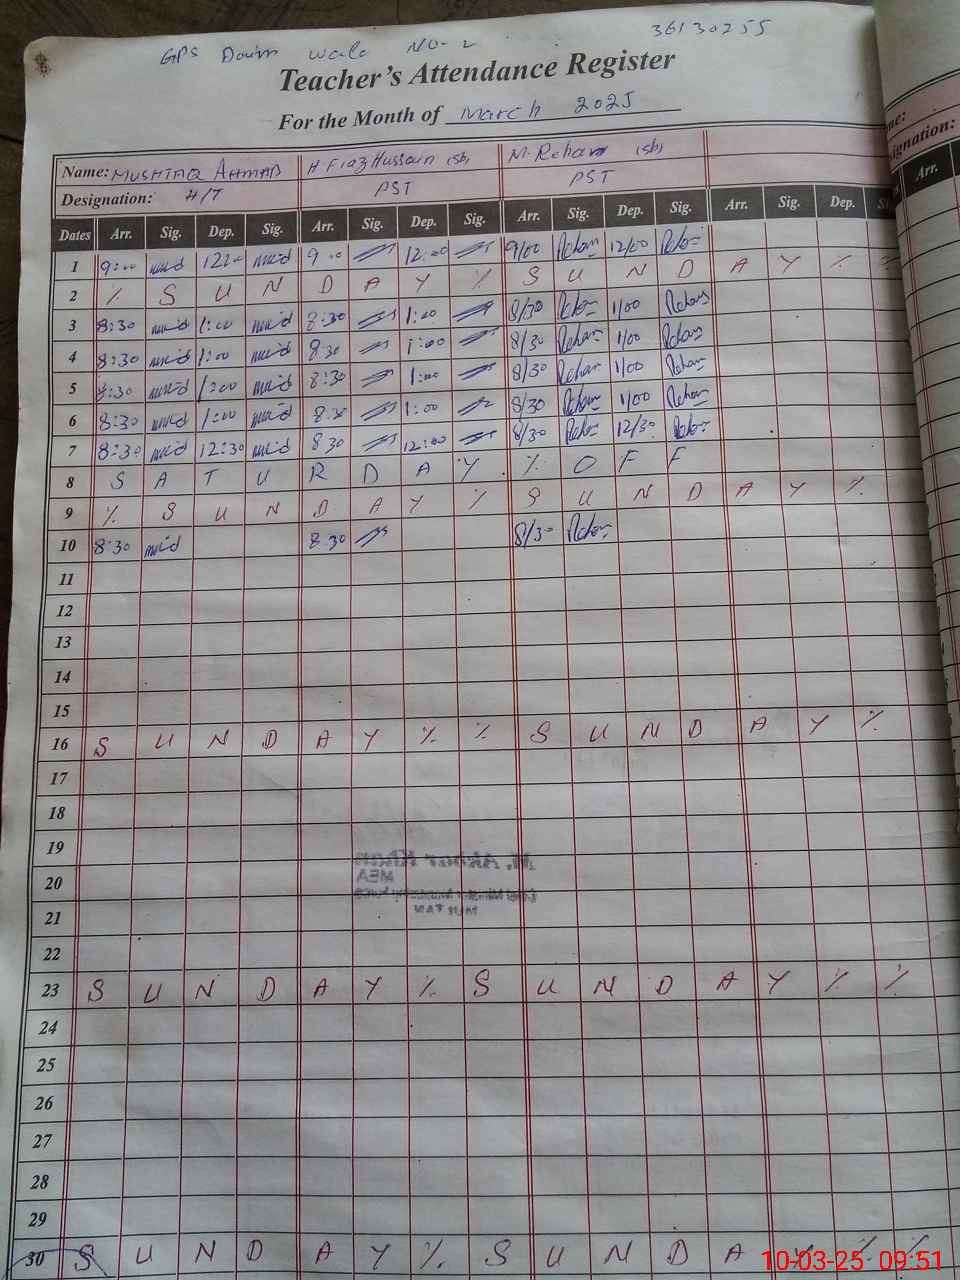 GPS Daim Wala NO-2 36130255
Teacher's Attendance Register
For the Month of March 2025
Name: MUSHTAQ AHMAD H Fiaz Hussain (sb) M. Rehan (sb)
Designation: H/T PST PST
Dates Arr. Sig. Dep. Sig. Arr. Sig. Dep. Sig. Arr. Sig. Dep. Sig. Arr. Sig. Dep. Si
1 9:00 12:00 9:00 12:00 9/00 Rehan 12/00 Rehan
2 % S U N D A Y % S U N D A Y % %
3 8:30 1:00 8:30 1:00 8/30 Rehan 1/00 Rehan
4 8:30 1:00 8:30 1:00 8/30 Rehan 1/00 Rehan
5 8:30 1:00 8:30 1:00 8/30 Rehan 1/00 Rehan
6 8:30 1:00 8:30 1:00 8/30 Rehan 1/00 Rehan
7 8:30 12:30 8:30 8/30 Rehan 12/30 Rehan
8 S A T U R D A Y % O F F
9 % S U N D A Y % S U N D A Y %
10 8:30 8:30 8/30 Rehan
11
12
13
14
15
16 S U N D A Y % % S U N D A Y %
17
18
19
20
21
22
23 S U N D A Y % S U N D A Y % %
24
25
26
27
28
29
30 S U N D A Y % S U N D A Y % %
M. Akbar Khan
MEA
MULTAN
me:
signation:
Arr.
10-03-25 09:51